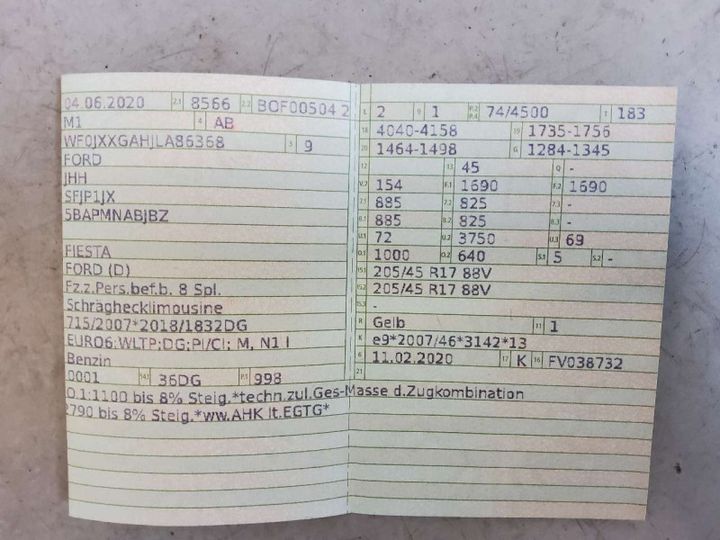 04.06.2020 2.1 8566 2.2 BOF00504 2
M1 4 AB
WF0JXXGAHJLA86368 3 9
FORD
JHH
SFJP1JX
5BAPMNABJBZ
FIESTA
FORD (D)
Fz.z.Pers.bef.b. 8 Spl.
Schräghecklimousine
715/2007*2018/1832DG
EURO6;WLTP;DG;PI/CI; M, N1 I
Benzin
0001 14.1 36DG P.1 998
O.1:1100 bis 8% Steig.*techn.zul.Ges-Masse d.Zugkombination
2790 bis 8% Steig.*ww.AHK lt.EGTG*
L 2 9 1 P.2 P.4 74/4500 T 183
18 4040-4158 19 1735-1756
20 1464-1498 G 1284-1345
12 13 45 Q -
V.7 154 F.1 1690 F.2 1690
7.1 885 7.2 825 7.3 -
8.1 885 8.2 825 8.3 -
U.1 72 U.2 3750 U.3 69
O.1 1000 O.2 640 S.1 5 S.2 -
15.1 205/45 R17 88V
15.2 205/45 R17 88V
15.3 -
R Gelb 11 1
K e9*2007/46*3142*13
6 11.02.2020 17 K 16 FV038732
21